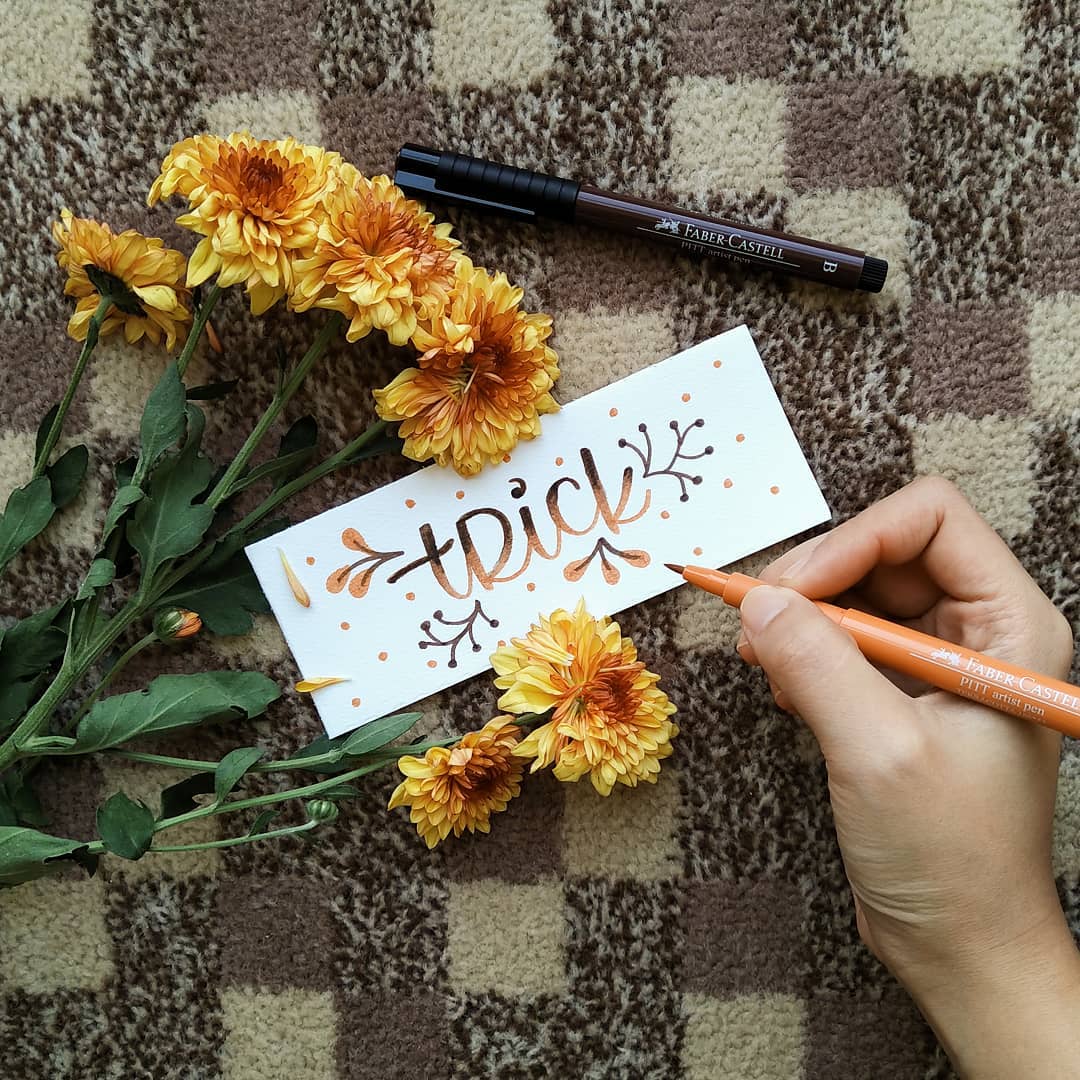 FABER-CASTELL
PITT artist pen
B
tRick
FABER-CASTELL
PITT artist pen